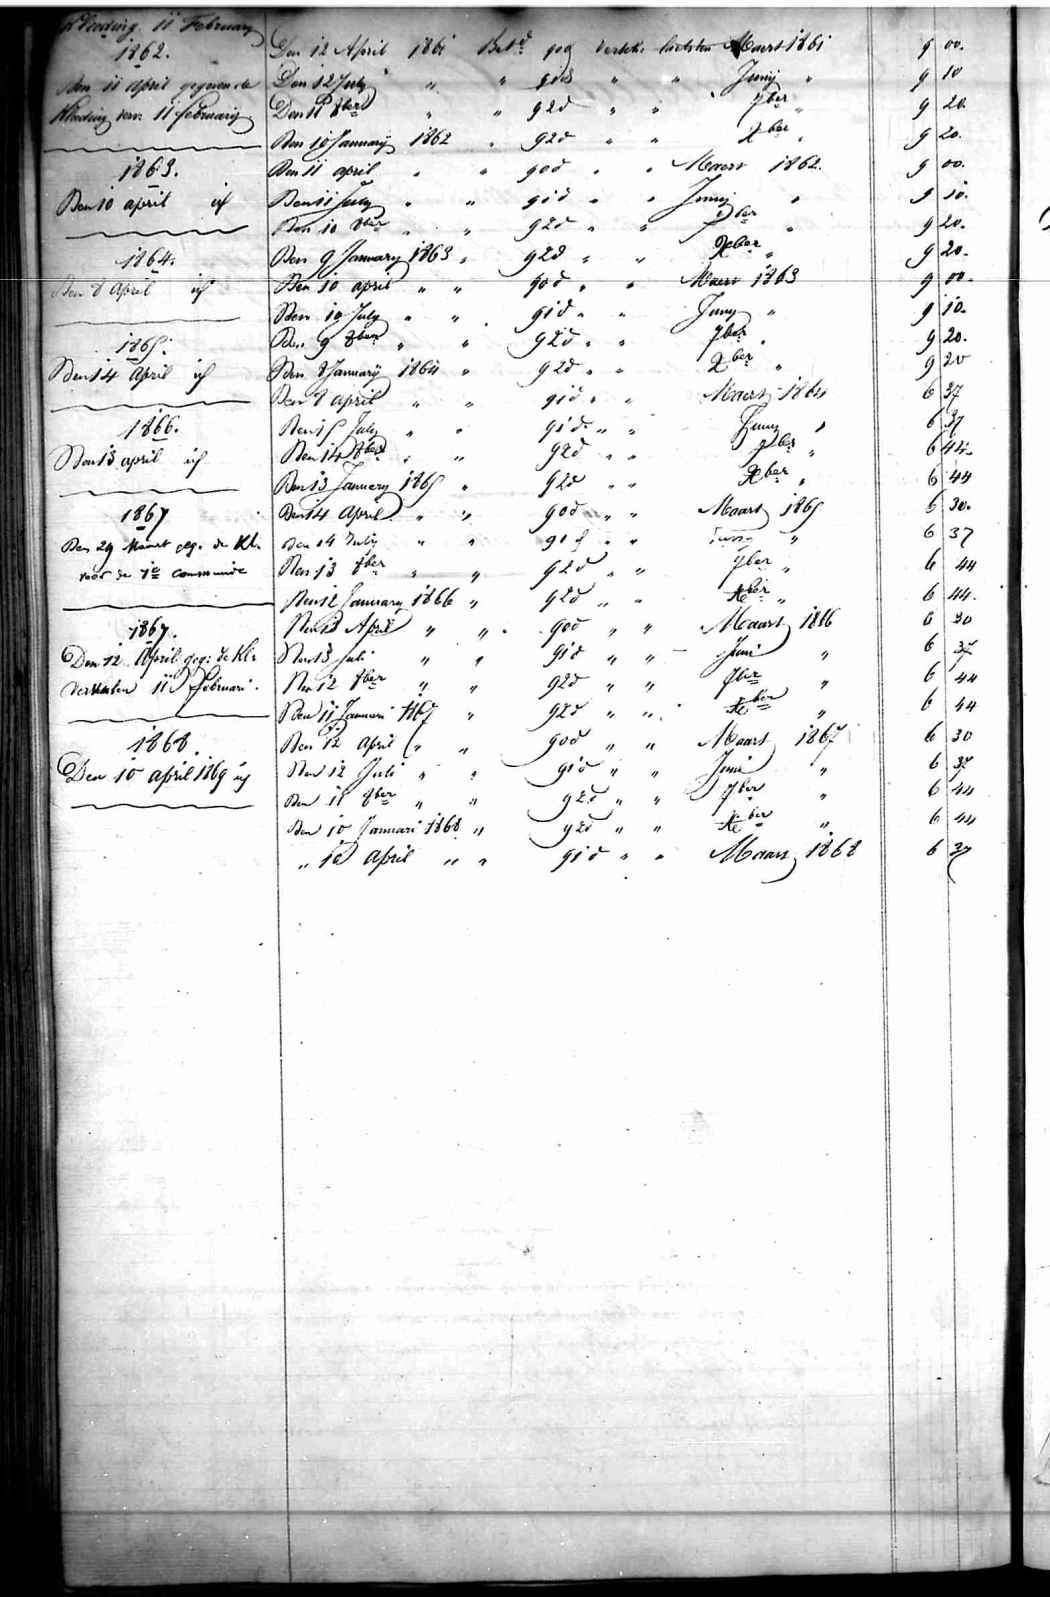 Kleeding 11 February
1862.
Den 11 April gegeven de
Kleeding verv. 11 february
1863.
Den 10 april id
1864.
Den 8 April id
1865.
Den 14 April id
1866.
Den 13 april id
1867
Den 29 Maart geg. de Kl.
voor de 1e communie
1867.
Den 12 April geg: de Kl:
vervallen 11 Februari.
1868
Den 10 april 1869 id
Den 12 April 1861 Betd 90d versch. laetsten Maert 1861 9 00.
Den 12 July " " 91d " " Juny " 9 10
Den 11 8ber " " 92d " " 7ber " 9 20
Den 10 January 1862 " 92d " " Xber " 9 20.
Den 11 april " " 90d " " Maert 1862. 9 00.
Den 11 July " " 91d " " Juny " 9 10.
Den 10 8ber " " 92d " " 7ber " 9 20.
Den 9 January 1863 " 92d " " Xber " 9 20.
Den 10 april " " 90d " " Maert 1863 9 00.
Den 10 July " " 91d " " Juny " 9 10.
Den 9 8ber " " 92d " " 7ber " 9 20.
Den 8 January 1864 " 92d " " Xber " 9 20
Den 8 april " " 91d " " Maert 1864 6 37
Den 15 July " " 91d " " Juny " 6 37
Den 14 8ber " " 92d " " 7ber " 6 44.
Den 13 January 1865 " 92d " " Xber " 6 44
Den 14 April " " 90d " " Maart 1865 6 30.
Den 14 July " " 91d " " Juny " 6 37
Den 13 8ber " " 92d " " 7ber " 6 44
Den 12 January 1866 " 92d " " Xber " 6 44.
Den 13 April " " 90d " " Maart 1866 6 30
Den 13 Juli " " 91d " " Juni " 6 37
Den 12 8ber " " 92d " " 7ber " 6 44
Den 11 Januari 1867 " 92d " " Xber " 6 44
Den 12 April " " 90d " " Maart 1867 6 30
Den 12 Juli " " 91d " " Juni " 6 37
Den 11 8ber " " 92d " " 7ber " 6 44
Den 10 Januari 1868 " 92d " " Xber " 6 44
" 10 April " " 91d " " Maart 1868 6 37